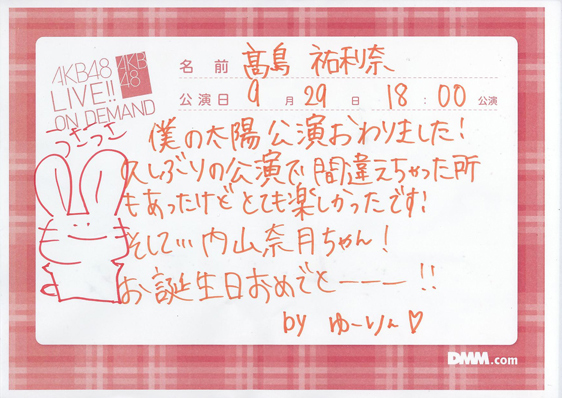 AKB48
LIVE!!
ON DEMAND
AKB
48
名前 髙島 祐利奈
公演日 9月29日 18:00公演
うさうさ
僕の太陽公演おわりました!
久しぶりの公演で間違えちゃった所
もあったけどとても楽しかったです!
そして…内山奈月ちゃん!
お誕生日おめでとーーー!!
by ゆーりん♡
DMM.com